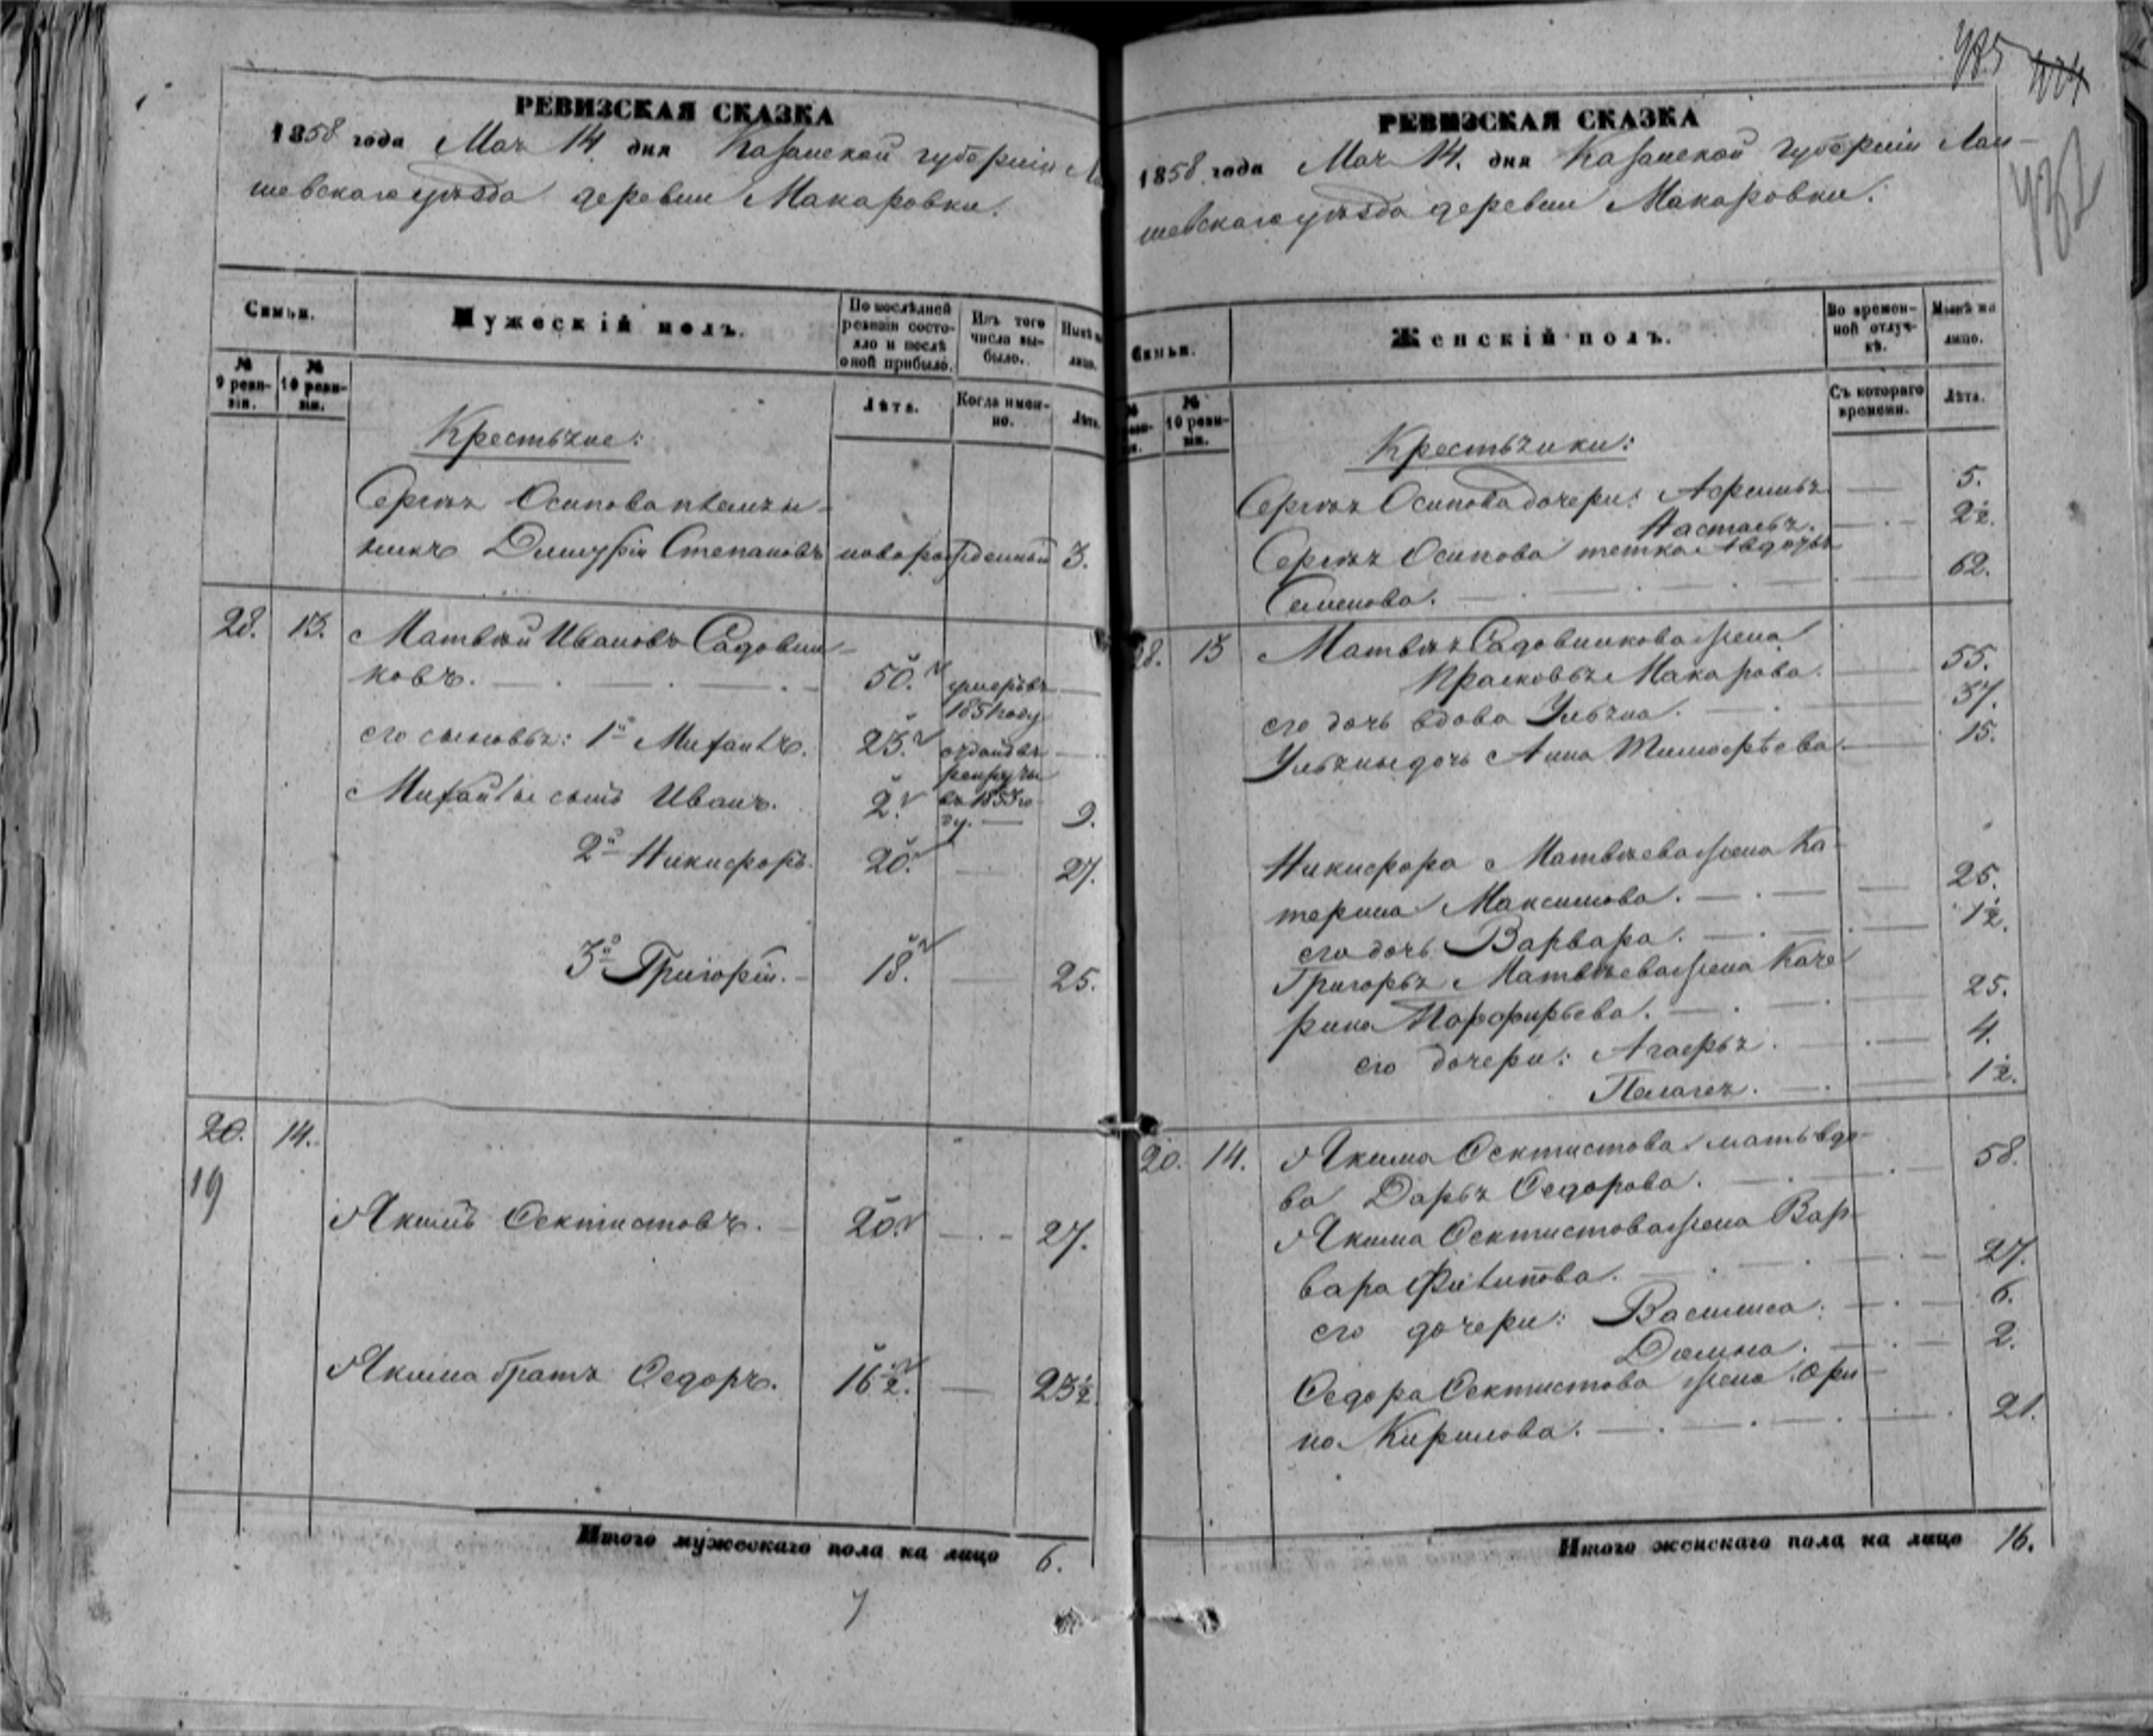 РЕВИЗСКАЯ СКАЗКА
1858 года Мая 14 дня Казанской губерніи Ла
шевскаго уѣзда деревни Макаровки.
Семьи.
Мужескій полъ.
По послѣдней ревизіи состояло и послѣ оной прибыло.
Изъ того числа выбыло.
Нынѣ на лицо.
№ 9 ревизіи.
№ 10 ревизіи.
Лѣта.
Когда именно.
Лѣта.
Крестьяне:
Сергѣя Осипова племян-
никъ Димитрій Степановъ новорожденный 3.
28. 13. Матвѣй Ивановъ Садовни-
ковъ. 50. умеръ въ
1851 году
его сыновья: 1й Михаилъ. 23. отданъ въ
рекруты
Михайлы сынъ Иванъ. 2. въ 1853 го-
ду. 9.
2й Никифоръ. 20. 27.
3й Григорій. 18. 25.
20. 14.
19
Якимъ Фектистовъ. 20. 27.
Якима братъ Федоръ. 16½. 23½.
Итого мужескаго пола на лицо 6.
7
485
РЕВИЗСКАЯ СКАЗКА
1858 года Мая 14. дня Казанской Губерніи Лаи-
шевскаго уѣзда деревни Макаровки.
Семьи.
Женскій полъ.
Во временной отлучкѣ.
Нынѣ на лицо.
№ 10 ревизіи.
Съ котораго времени.
Лѣта.
Крестьянки:
Сергѣя Осипова дочери: Афимья 5.
Настасья. 2½.
Сергѣя Осипова тетка Авдотья
Семенова. 62.
28. 13 Матвѣя Садовникова жена
Прасковья Макарова. 55.
его дочь вдова Ульяна. 37.
Ульяны дочь Анна Тимофѣева. 15.
Никифора Матвѣева жена Ка-
терина Максимова. 25.
его дочь Варвара. 1½.
Григорья Матвѣева жена Кате
рина Порфирьева. 25.
его дочери: Агафья. 4.
Пелагея. 1½.
20. 14. Якима Фектистова мать вдо-
ва Дарья Федорова. 58.
Якима Фектистова жена Вар-
вара Филипова. 27.
его дочери: Василиса. 6.
Домна. 2.
Федора Фектистова жена Ори-
на Кирилова. 21.
Итого женскаго пола на лицо 16.